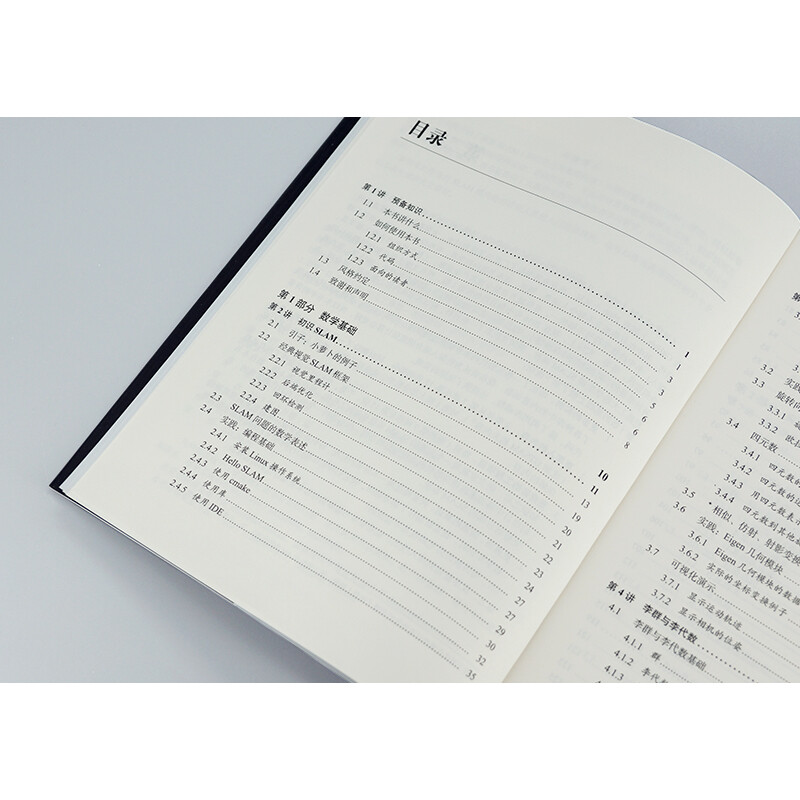 目录
第1讲 预备知识 1
1.1 本书讲什么 1
1.2 如何使用本书 3
1.2.1 组织方式 3
1.2.2 代码 5
1.2.3 面向的读者 6
1.3 风格约定 6
1.4 致谢和声明 8
第1部分 数学基础 10
第2讲 初识SLAM 11
2.1 引子：小萝卜的例子 13
2.2 经典视觉SLAM框架 19
2.2.1 视觉里程计 20
2.2.2 后端优化 21
2.2.3 回环检测 22
2.2.4 建图 23
2.3 SLAM问题的数学表述 24
2.4 实践：编程基础 27
2.4.1 安装Linux操作系统 27
2.4.2 Hello SLAM 29
2.4.3 使用cmake 30
2.4.4 使用库 32
2.4.5 使用IDE 35
3.2 实践
3.3 旋转向
3.3.1
3.3.2 欧拉
3.4 四元数
3.4.1 四元数的
3.4.2 四元数的
3.4.3 用四元数表示
3.4.4 四元数到其他
3.5 *相似、仿射、射影变换
3.6 实践：Eigen几何模块
3.6.1 Eigen几何模块的数据
3.6.2 实际的坐标变换例子
3.7 可视化演示
3.7.1 显示运动轨迹
3.7.2 显示相机的位姿
第4讲 李群与李代数
4.1 李群与李代数基础
4.1.1 群
4.1.2 李代
4.1.3